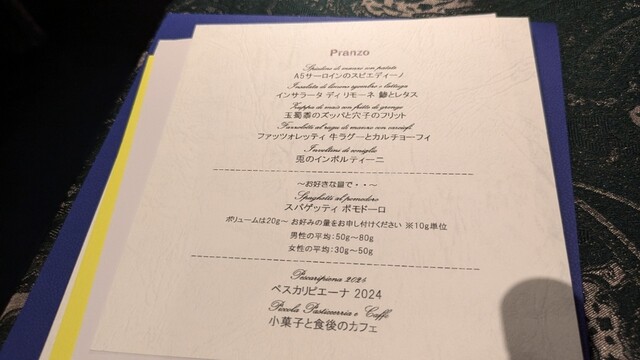 Pranzo
Spiedino di manzo con patate
A5サーロインのスピエディーノ
Insalata di limone sgombro e lattuga
インサラータ ディ リモーネ 鯵とレタス
Zuppa di mais con fritto di grongo
玉蜀黍のズッパと穴子のフリット
Fazzoletti al ragu di manzo con carciofi
ファッツォレッティ 牛ラグーとカルチョーフィ
Involtini di coniglio
兎のインボルティーニ
～お好きな量で・・～
Spaghetti al pomodoro
スパゲッティ ポモドーロ
ボリュームは20g～ お好みの量をお申し付けください ※10g単位
男性の平均：50g～80g
女性の平均：30g～50g
Pescaripiena 2024
ペスカリピエーナ 2024
Piccola Pasticceria e Caffe
小菓子と食後のカフェ